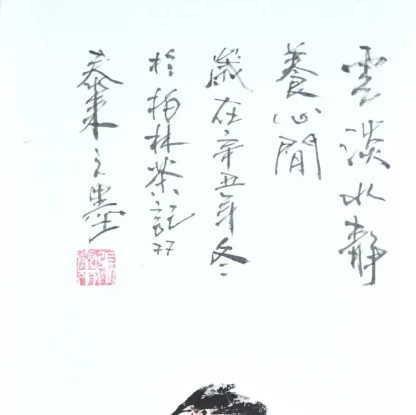 雲淡水靜
養心閒
歲在辛丑年冬
於柏林茶記
泰來之墨